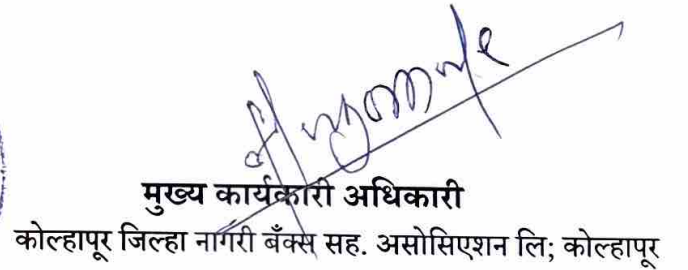 मुख्य कार्यकारी अधिकारी
कोल्हापूर जिल्हा नागरी बँक्स सह. असोसिएशन लि; कोल्हापूर